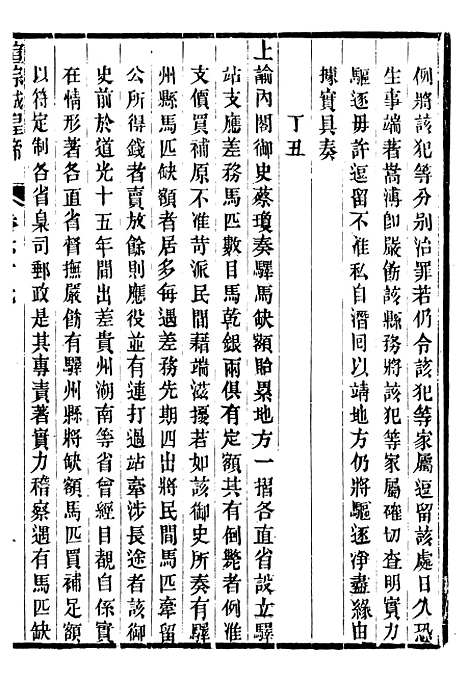 例將該犯等分別治罪若仍令該犯等家屬逗留該處日久恐
生事端著嵩溥卽嚴飭該縣務將該犯等家屬確切查明實力
驅逐毋許逗留不准私自潛回以靖地方仍將驅逐淨盡緣由
據實具奏
丁丑
上諭內閣御史蔡瓊奏驛馬缺額貽累地方一摺各直省設立驛
站支應差務馬匹數目馬乾銀兩俱有定額其有倒斃者例准
支價買補原不准苛派民間藉端滋擾若如該御史所奏有驛
州縣馬匹缺額者居多每遇差務先期四出將民間馬匹牽留
公所得錢者賣放餘則應役並有連打過站牽涉長途者該御
史前於道光十五年間出差貴州湖南等省曾經目覩自係實
在情形著各直省督撫嚴飭有驛州縣將缺額馬匹買補足額
以符定制各省臬司郵政是其專責著實力稽察遇有馬匹缺
宣宗成皇帝